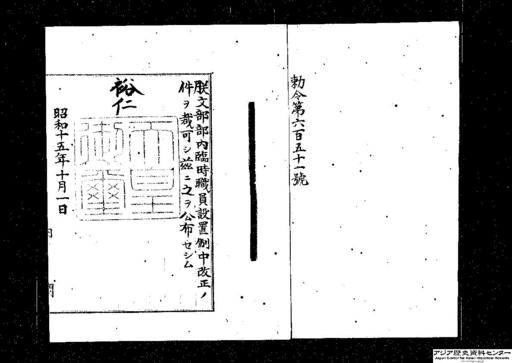 勅令第六百五十一號
朕文部部內臨時職員設置制中改正ノ
件ヲ裁可シ茲ニ之ヲ公布セシム
裕仁
昭和十五年十月一日
アジア歴史資料センター
Japan Center for Asian Historical Records